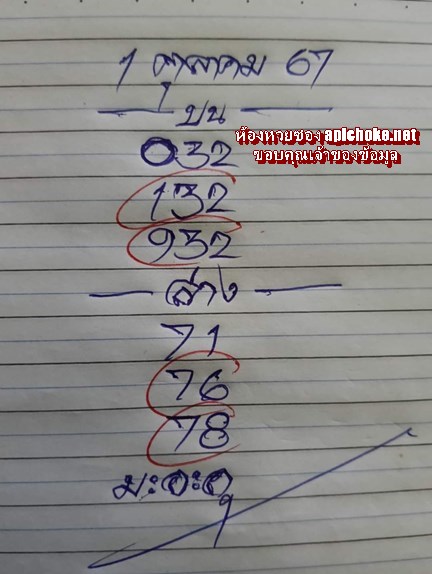 1 ตุลาคม 67
บน
ห้องหวยซอง apichoke.net
ขอบคุณเจ้าของข้อมูล
032
132
932
ล่าง
71
76
78